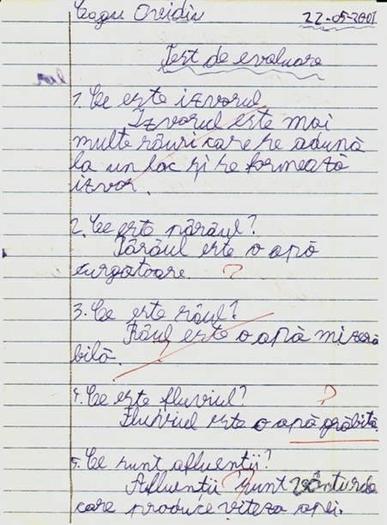 Cozou Ovidiu 22-05-2001
Test de evaluare
1. Ce este izvorul
Izvorul este mai
multe râuri care se adună
la un loc și se formează
izvor.
2. Ce este pârâul?
Pârâul este o apă
curgatoare. ?
3. Ce este râul?
Râul este o apă mizera
bilă.
4. Ce este fluviul? ?
Fluviul este o apă grăbită
5. Ce sunt afluenții?
Afluenții sunt vânturile
care produce viteza apei.